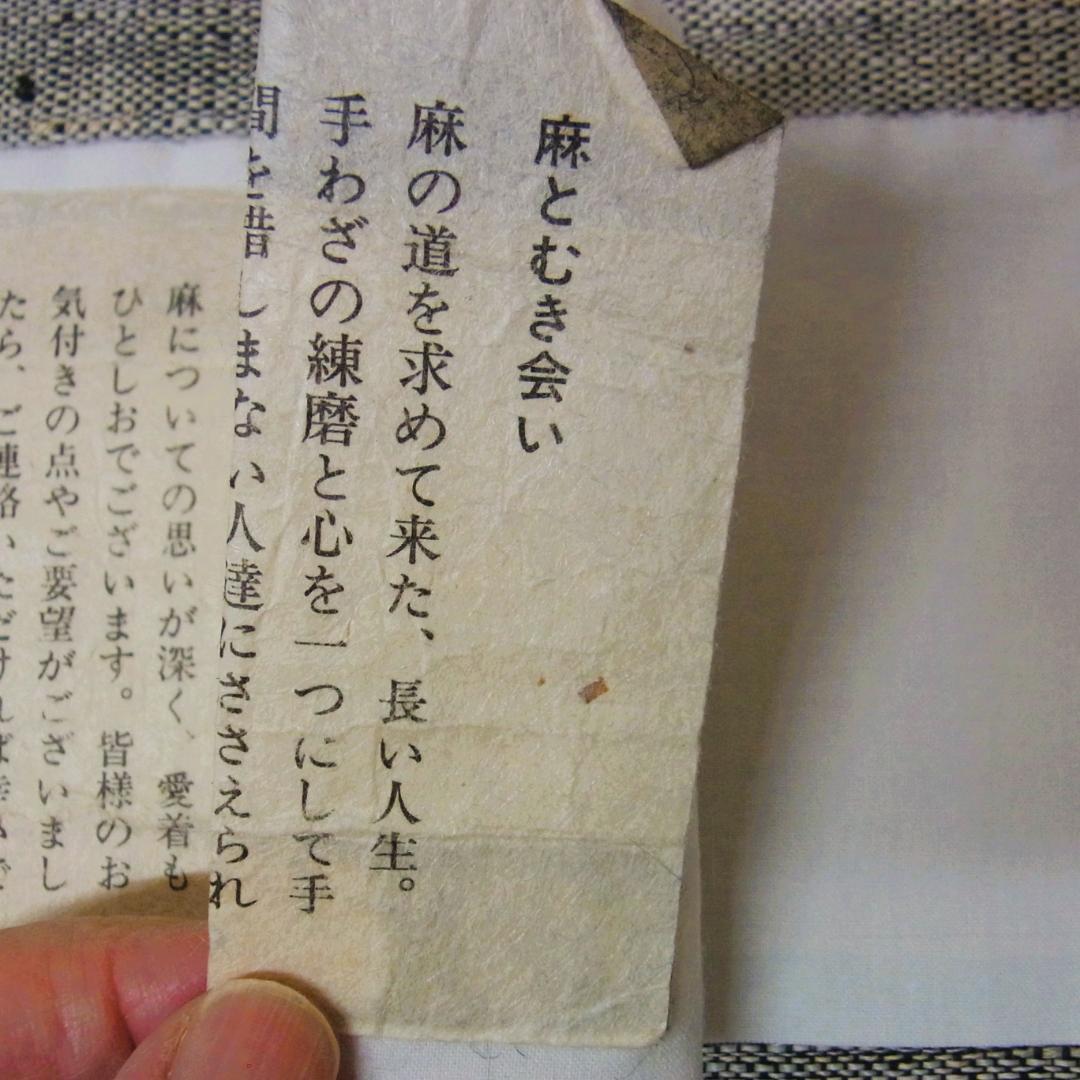 麻とむき会い
麻の道を求めて来た、長い人生。
手わざの練磨と心を一つにして手
間を惜しまない人達にささえられ
麻についての思いが深く、愛着も
ひとしおでございます。皆様のお
気付きの点やご要望がございまし
たら、ご連絡いただければ幸いで